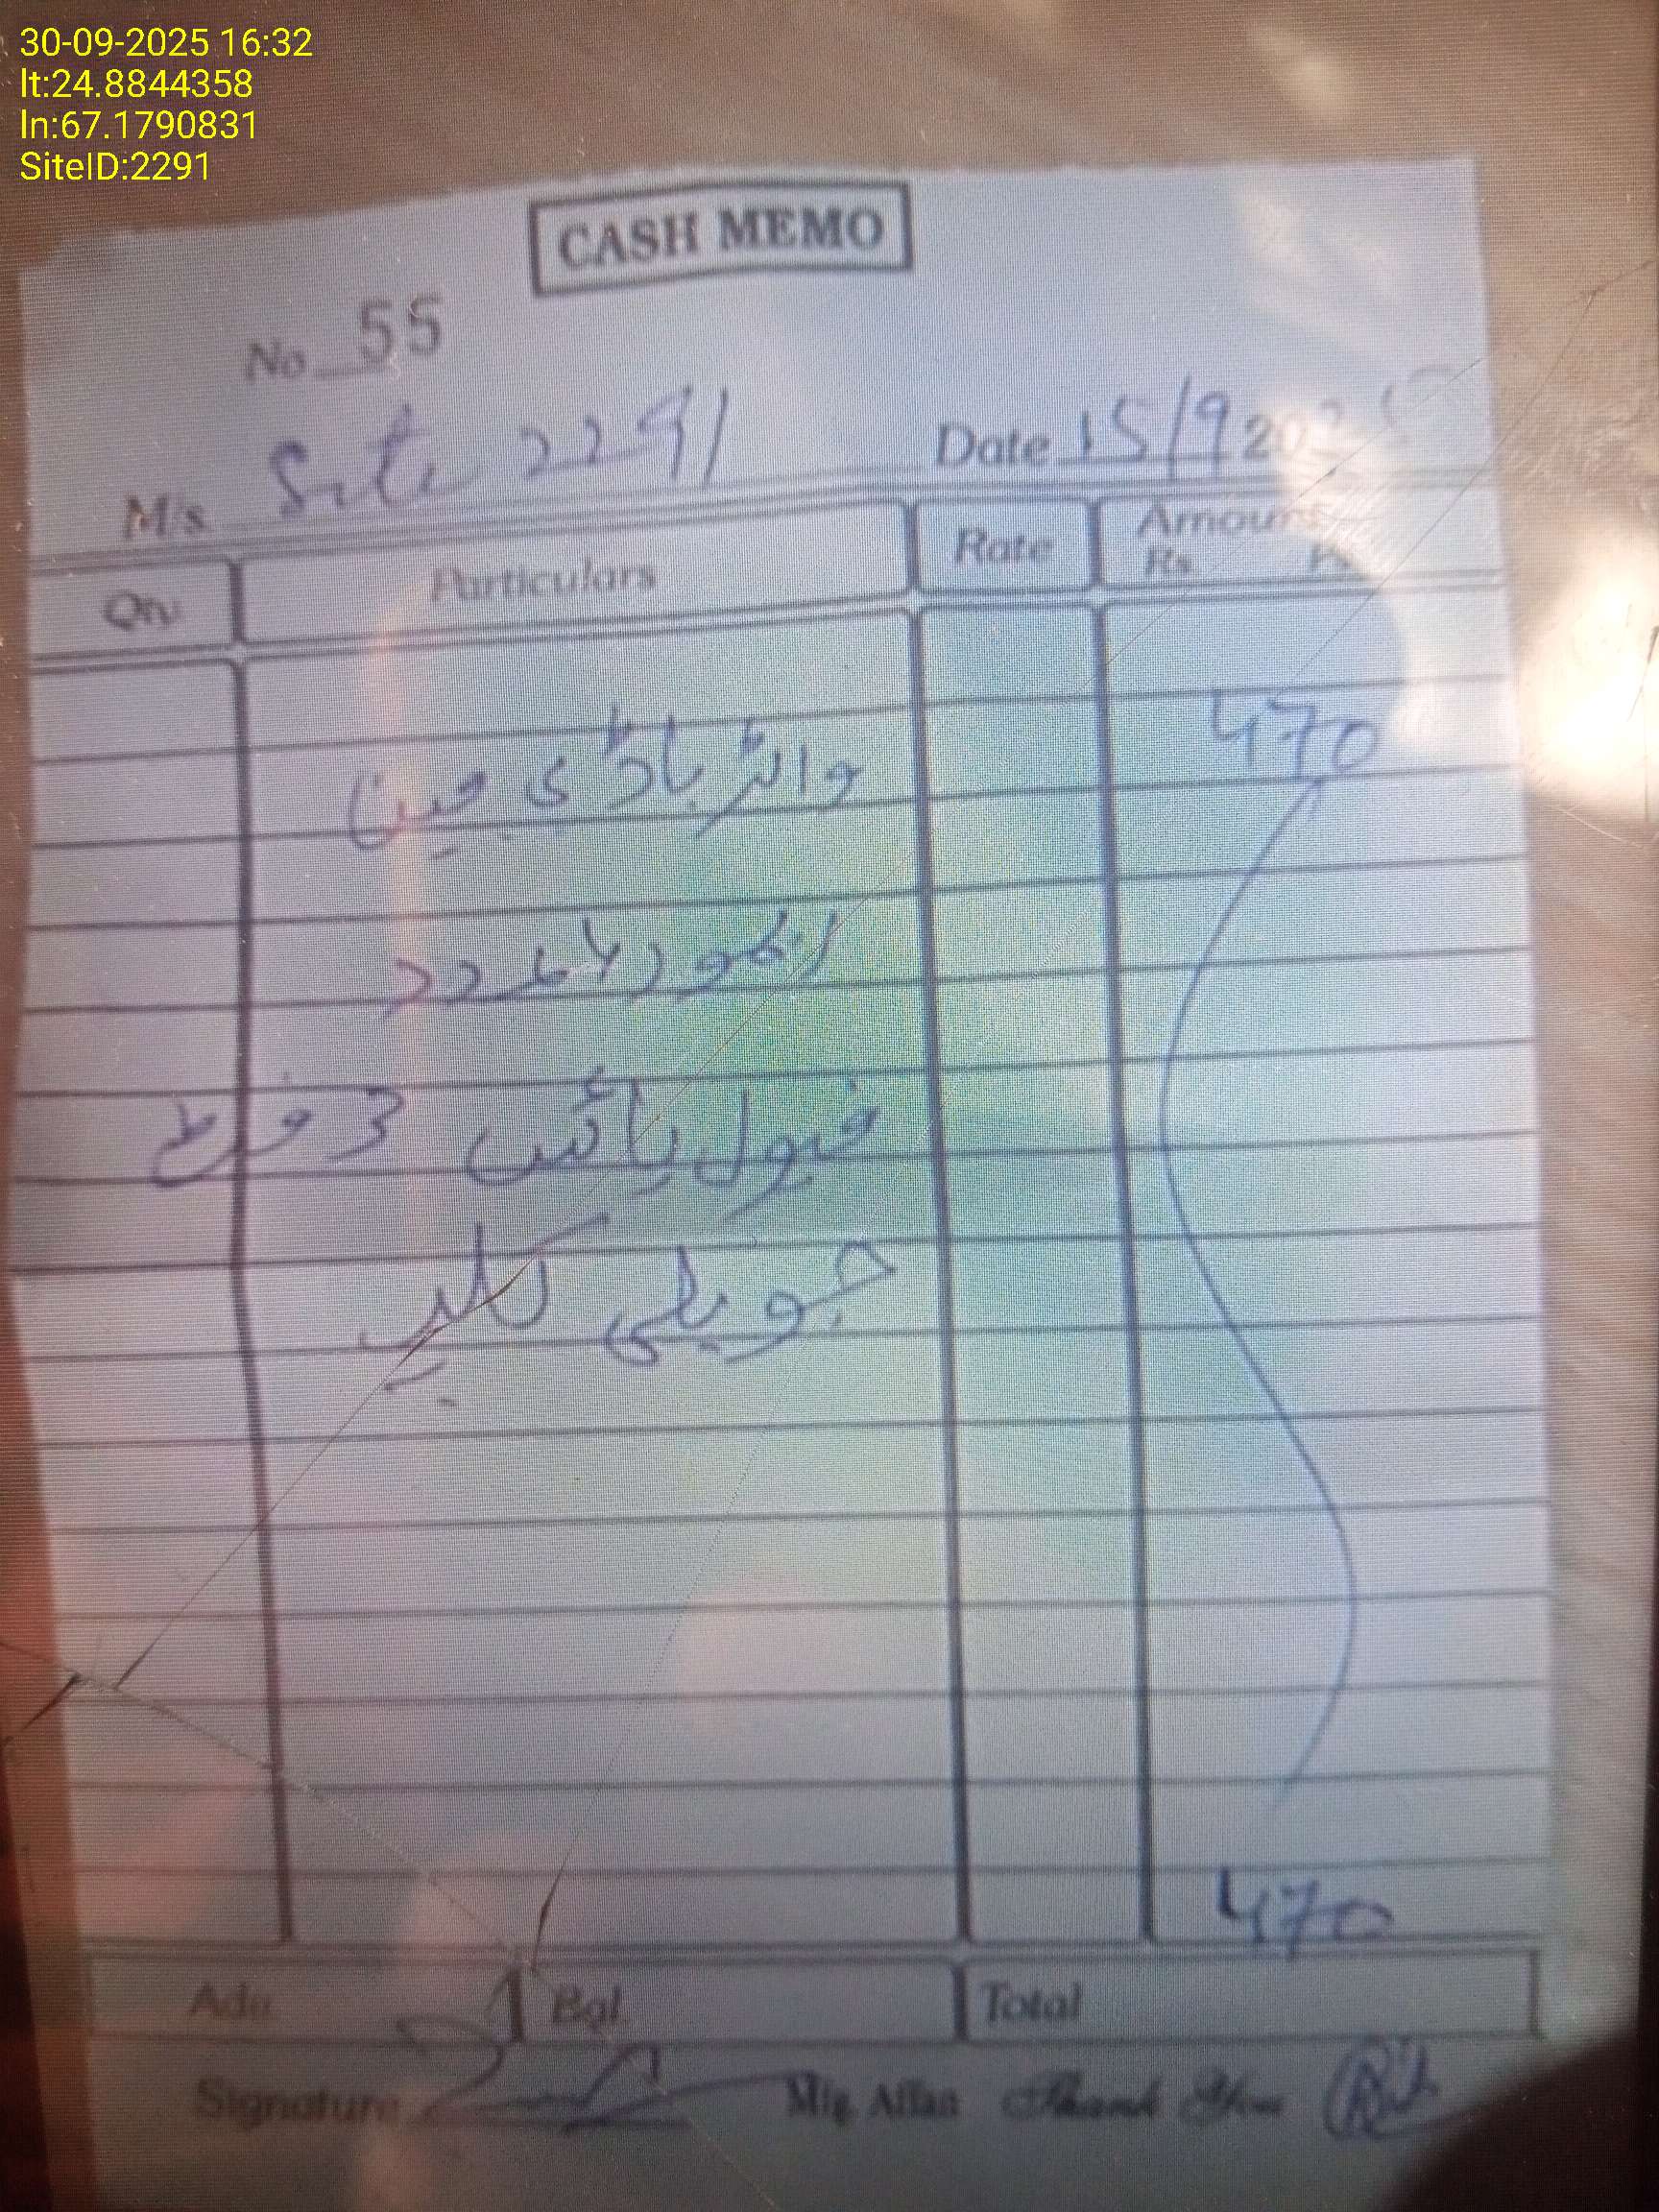 30-09-2025 16:32
lt:24.8844358
ln:67.1790831
SiteID:2291
CASH MEMO
No 55
M/s Site 2291 Date 15/9 202
Qty Particulars Rate Amount Rs Ps
واٹر باڈی مین 470
عدد
فیول پائپ 3 فٹ
جوبلی کلپ
470
Adv Bal Total
Signature Thank You